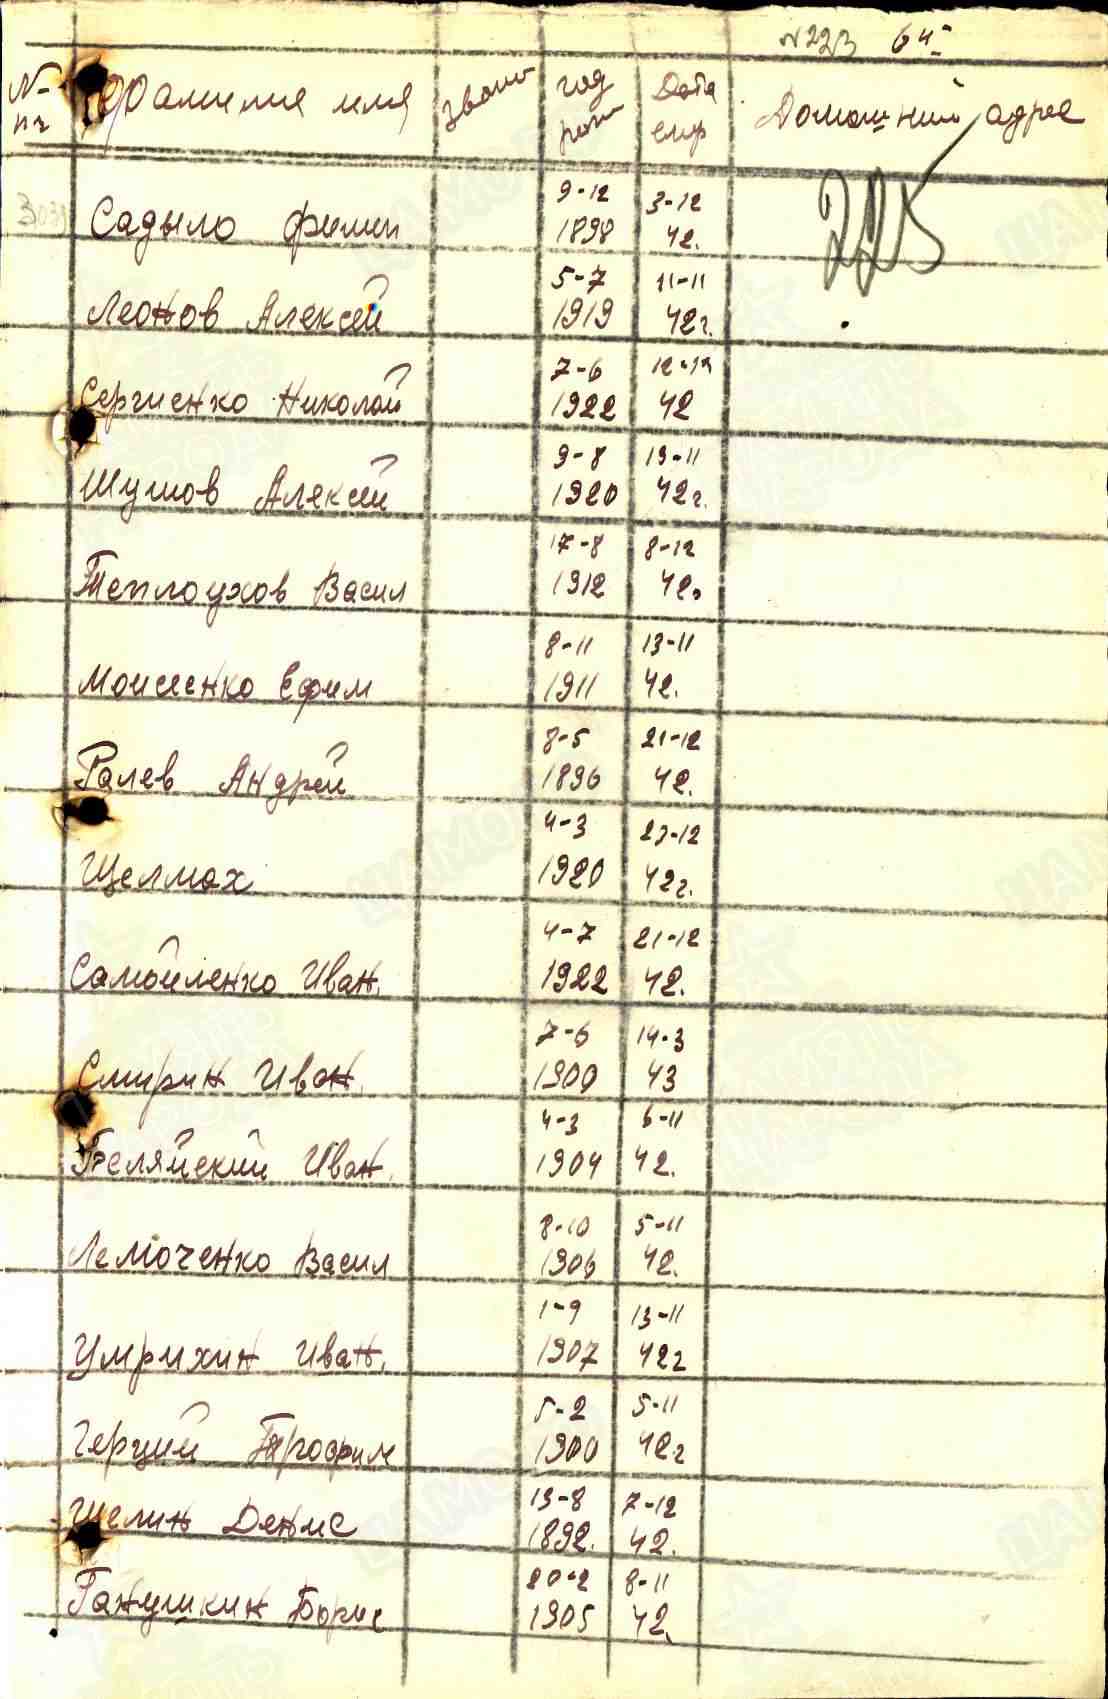 N223 64
№ Фамилия имя звани год Дата Домашний адрес
пг рож смр
225
303
9-12 3-12
Садыло Филип 1898 42.
5-7 11-11
Леонов Алексей 1919 42г.
7-6 12-12
Сергиенко Николай 1922 42
9-8 13-11
Шушов Алексей 1920 42г.
17-8 8-12
Теплоухов Васил 1912 42г
8-11 13-11
Моисеенко Ефим 1911 42.
8-5 21-12
Галев Андрей 1896 42.
4-3 23-12
Щелмах 1920 42г.
4-7 21-12
Самойленко Иван. 1922 42.
7-6 14-3
Смирин Иван. 1900 43
4-3 6-11
Беляйский Иван. 1904 42.
8-10 5-11
Лемоченко Васил 1906 42.
1-9 13-11
Умрихин Иван. 1907 42г
5-2 5-11
Герций Трофим 1900 42г
13-8 7-12
Щелин Денис 1892. 42.
20-2 8-11
Ганушкин Борис 1905 42.